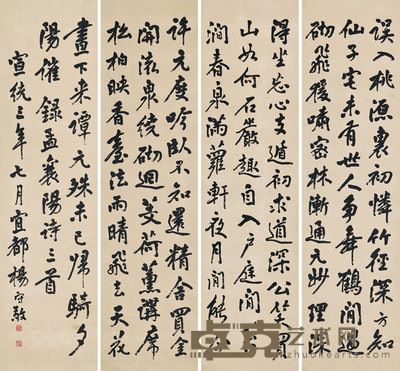 誤入桃源裏初憐竹徑深方知
仙子宅未有世人尋舞鶴閒過
砌飛猨嘯密林漸通元妙理深
得坐忘心支遁初求道深公笑買
山如何石巖趣自入戶庭間苔
澗春泉滿蘿軒夜月閒能令
許元度吟臥不知還精舍買金
開流泉繞砌迴芰荷薰講席
松柏映香臺法雨晴飛去天花
晝下來譚元殊未已歸騎夕
陽催錄孟襄陽詩三首
宣統三年七月宜都楊守敬
艺术网